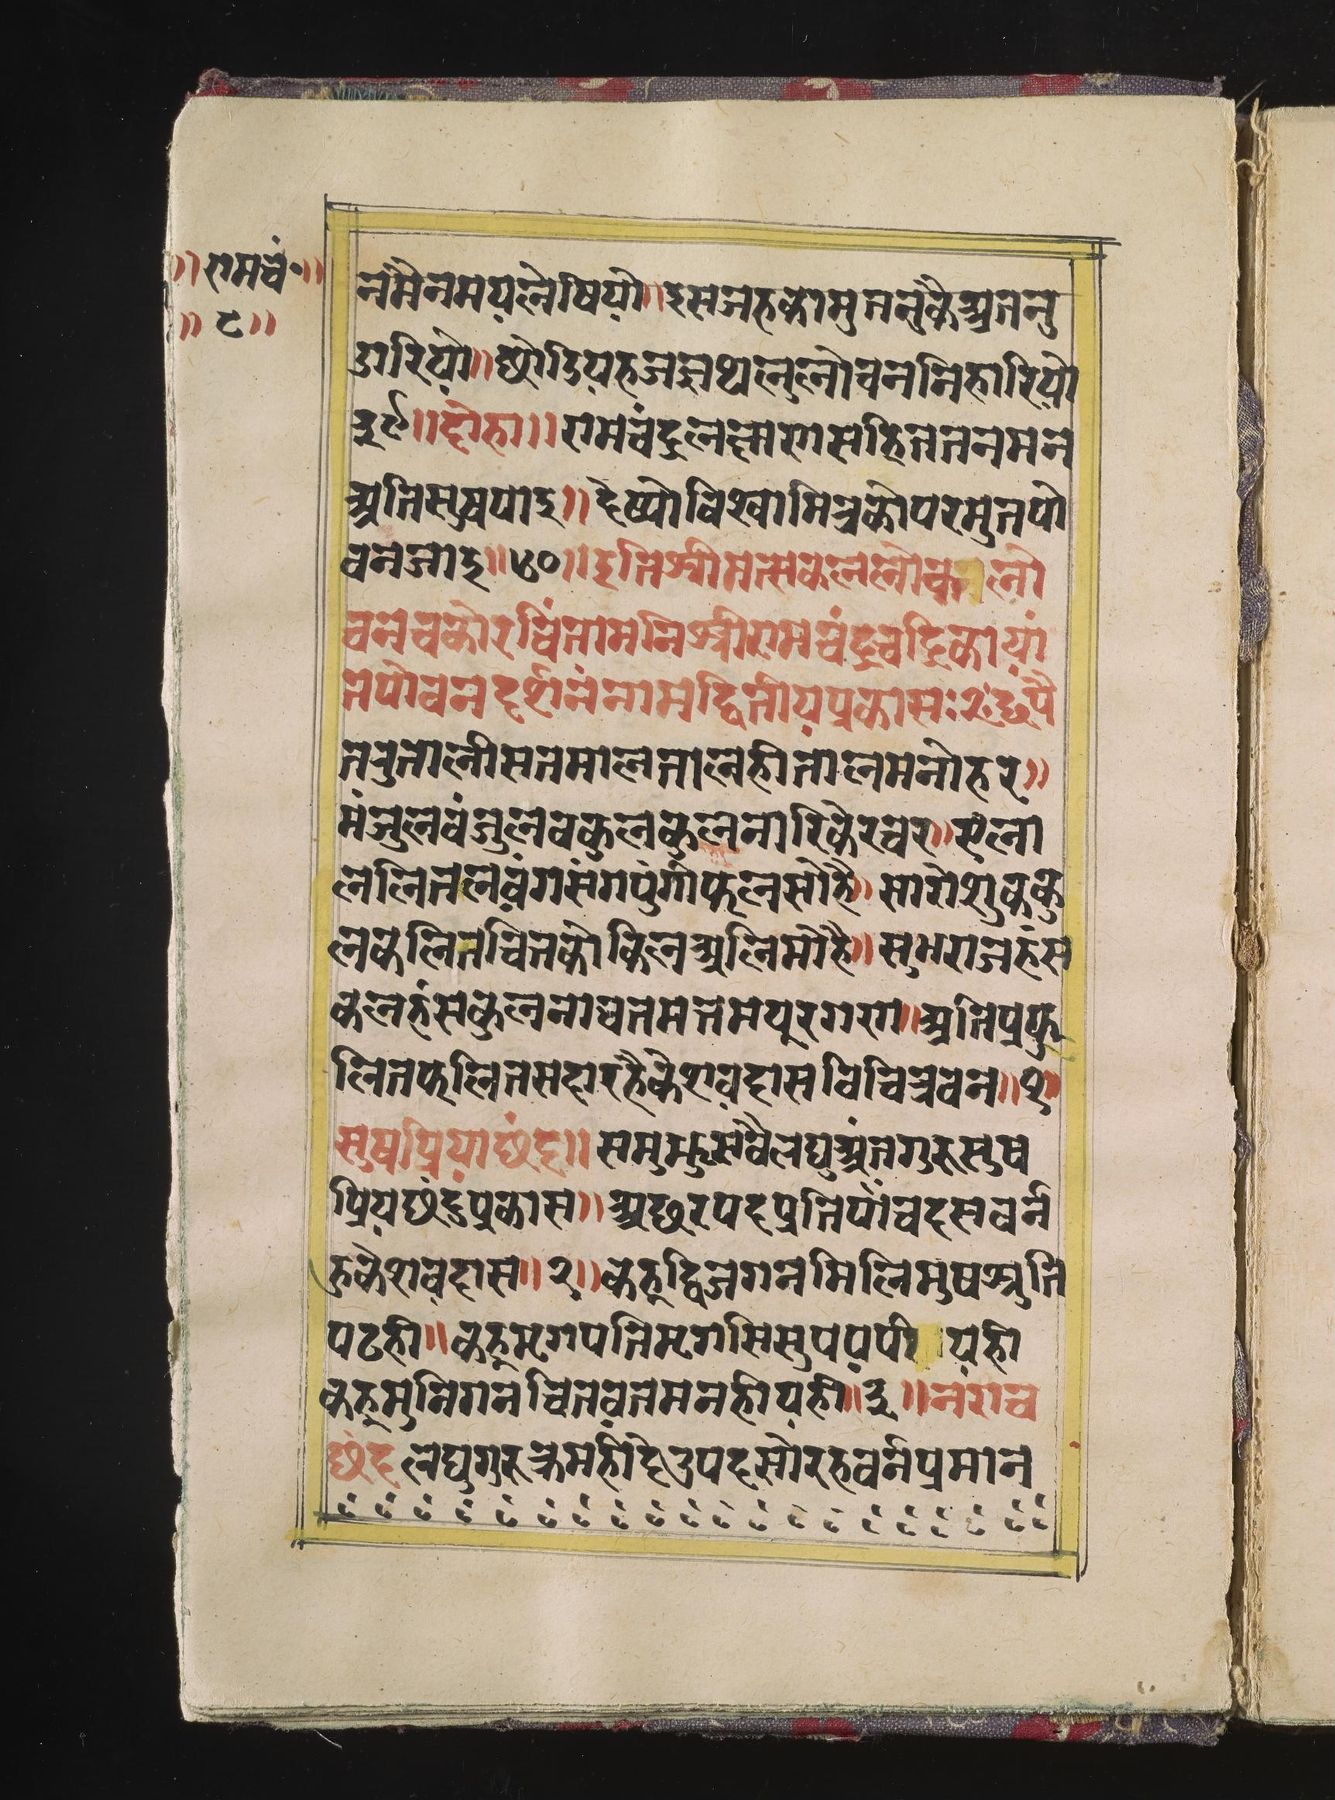 ॥रामचं॰॥
॥८॥
नमैनमयलेषियो॥इसजहकोमुतनुकैअतनु
डारियो॥छोडियहजज्ञथलुलोचननिहारियो
३९॥दोहा॥रामचंद्रलछमणसहिततनमन
अतिसुषपाइ॥देष्योविश्वामित्रकोपरमुतपो
वनजाइ॥४०॥इतिश्रीमत्सकललोकलो
चनचकोरचिंतामनिश्रीरामचंद्रचंद्रिकायां
तपोवनदर्शनंनामद्वितीयप्रकासः२छपै
तरुतालीसतमालतालहीतालमनोहर॥
मंजुलवंजुलवकुलकुलनारिकेरवर॥एला
ललितलवंगसंगपुंगीफलसोहै॥सारोशुककु
लकलितचितकोकिलअलिमोहै॥सुभराजहंस
कलहंसकुलनाचतमतमयूरगण॥अतिप्रफु
लितफलितसदारहैकेशवदासविचित्रवन॥१
सुषप्रियाछंद॥समुझुसवैलघुअंतगुरुसुष
प्रियछंदुप्रकास॥अछरपदप्रतिपांचदसवर्न
हुकेशवदास॥२॥कहूद्विजगनमिलिमुषश्रुति
पढही॥कहूमृगपतिमृगसिसुपयपीयही
कहूमुनिगनचितवतमनहीयही॥३॥नराच
छंद लघुगुरुक्रमहीदेउपदसोरहवर्नप्रमान